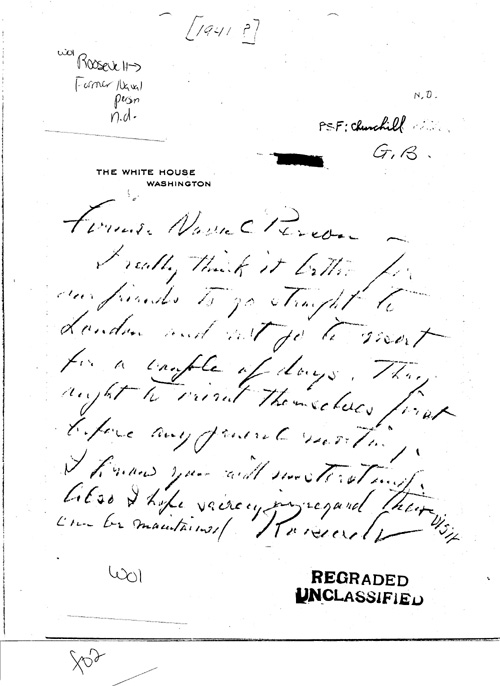 [1941 ?]
WO1
Roosevelt →
Former Naval
person
n.d.
N.D.
PSF: Churchill
G.B.
THE WHITE HOUSE
WASHINGTON
Former Naval Person –
I really think it better for
our friends to go straight to
London and not go to resort
for a couple of days. They
ought to orient themselves first
before any general meeting.
I know you will understand.
Also I hope secrecy in regard their visit
can be maintained Roosevelt
WO1
REGRADED
UNCLASSIFIED